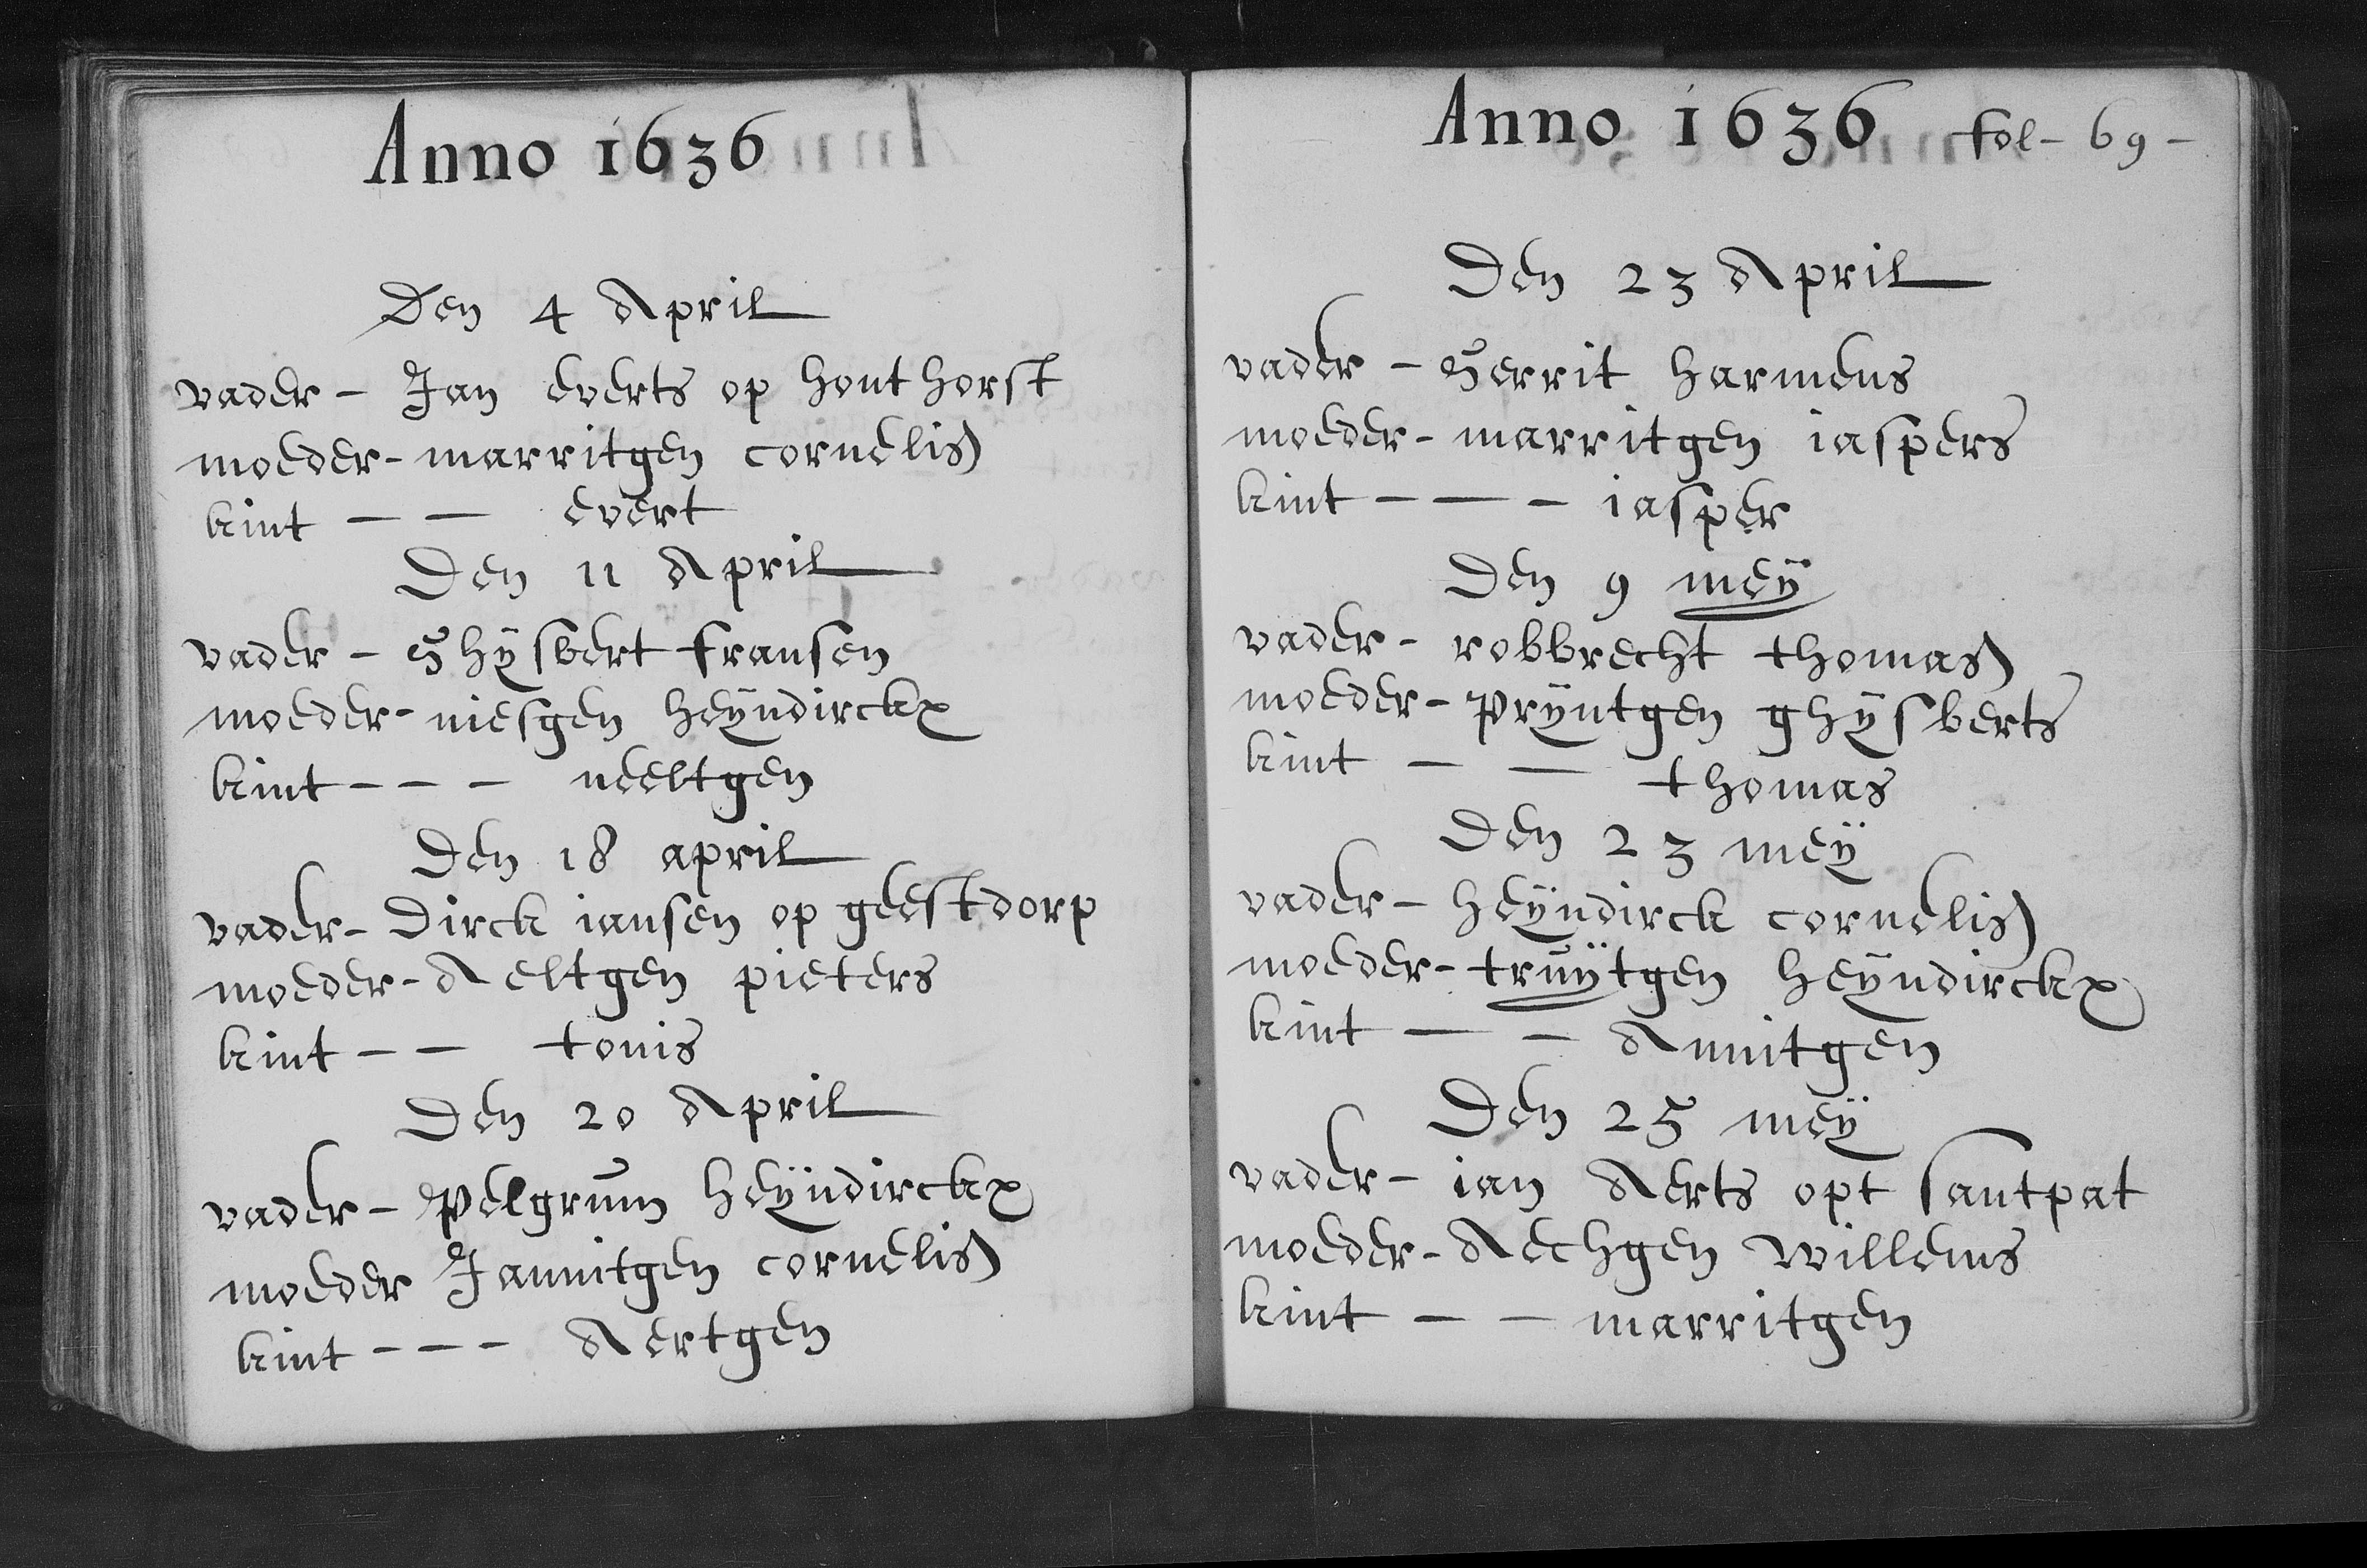 Anno 1636
Den 4 April
vader - Jan everts op hout horst
moeder - marritgen cornelis
kint - - evert
Den 11 April
vader - Ghÿsbert fransen
moeder - niesgen heÿndirckx
kint - - - neeltgen
Den 18 april
vader - Dirck iansen op geestdorp
moeder - Aeltgen pieters
kint - - tonis
Den 20 April
vader - Pelgrum heÿndirckx
moeder Jannitgen cornelis
kint - - - Aertgen
Anno 1636 fol - 69 -
Den 23 April
vader - Gerrit harmens
moeder - marritgen iaspers
kint - - - iasper
Den 9 meÿ
vader - robbrecht thomas
moeder - Prÿntgen ghÿsberts
kint - - thomas
Den 23 meÿ
vader - heÿndirck cornelis
moeder - truÿtgen heÿndirckx
kint - - Annitgen
Den 25 meÿ
vader - ian Aerts opt santpat
moeder - Aechgen willems
kint - - marritgen